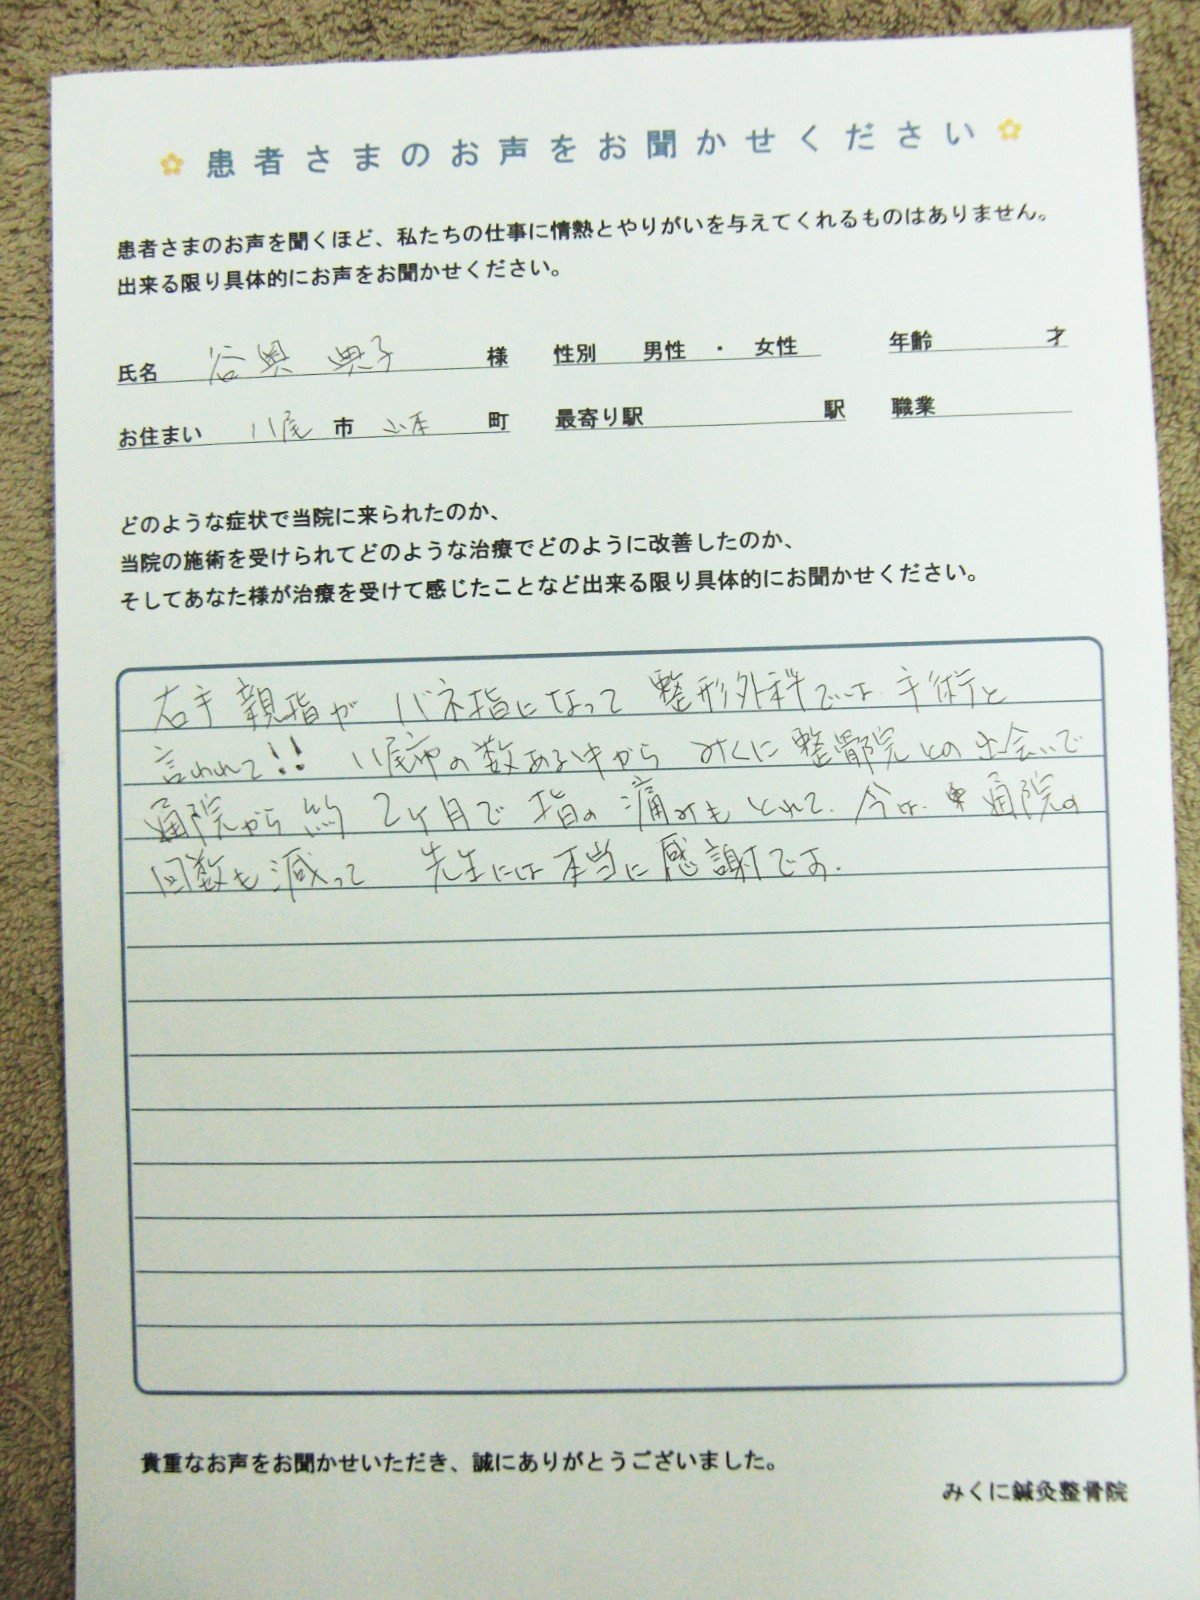 患者さまのお声をお聞かせください
患者さまのお声を聞くほど、私たちの仕事に情熱とやりがいを与えてくれるものはありません。
出来る限り具体的にお声をお聞かせください。
氏名 谷奥 典子 様 性別 男性 ・ 女性 年齢 才
お住まい 八尾 市 山本 町 最寄り駅 駅 職業
どのような症状で当院に来られたのか、
当院の施術を受けられてどのような治療でどのように改善したのか、
そしてあなた様が治療を受けて感じたことなど出来る限り具体的にお聞かせください。
右手親指が バネ指になって 整形外科では、手術と
言われて!! 八尾市の数ある中から みくに整骨院との出会いで
通院から約 2ケ月で 指の痛みもとれて、今は、通院の
回数も減って 先生には本当に感謝です.
貴重なお声をお聞かせいただき、誠にありがとうございました。
みくに鍼灸整骨院